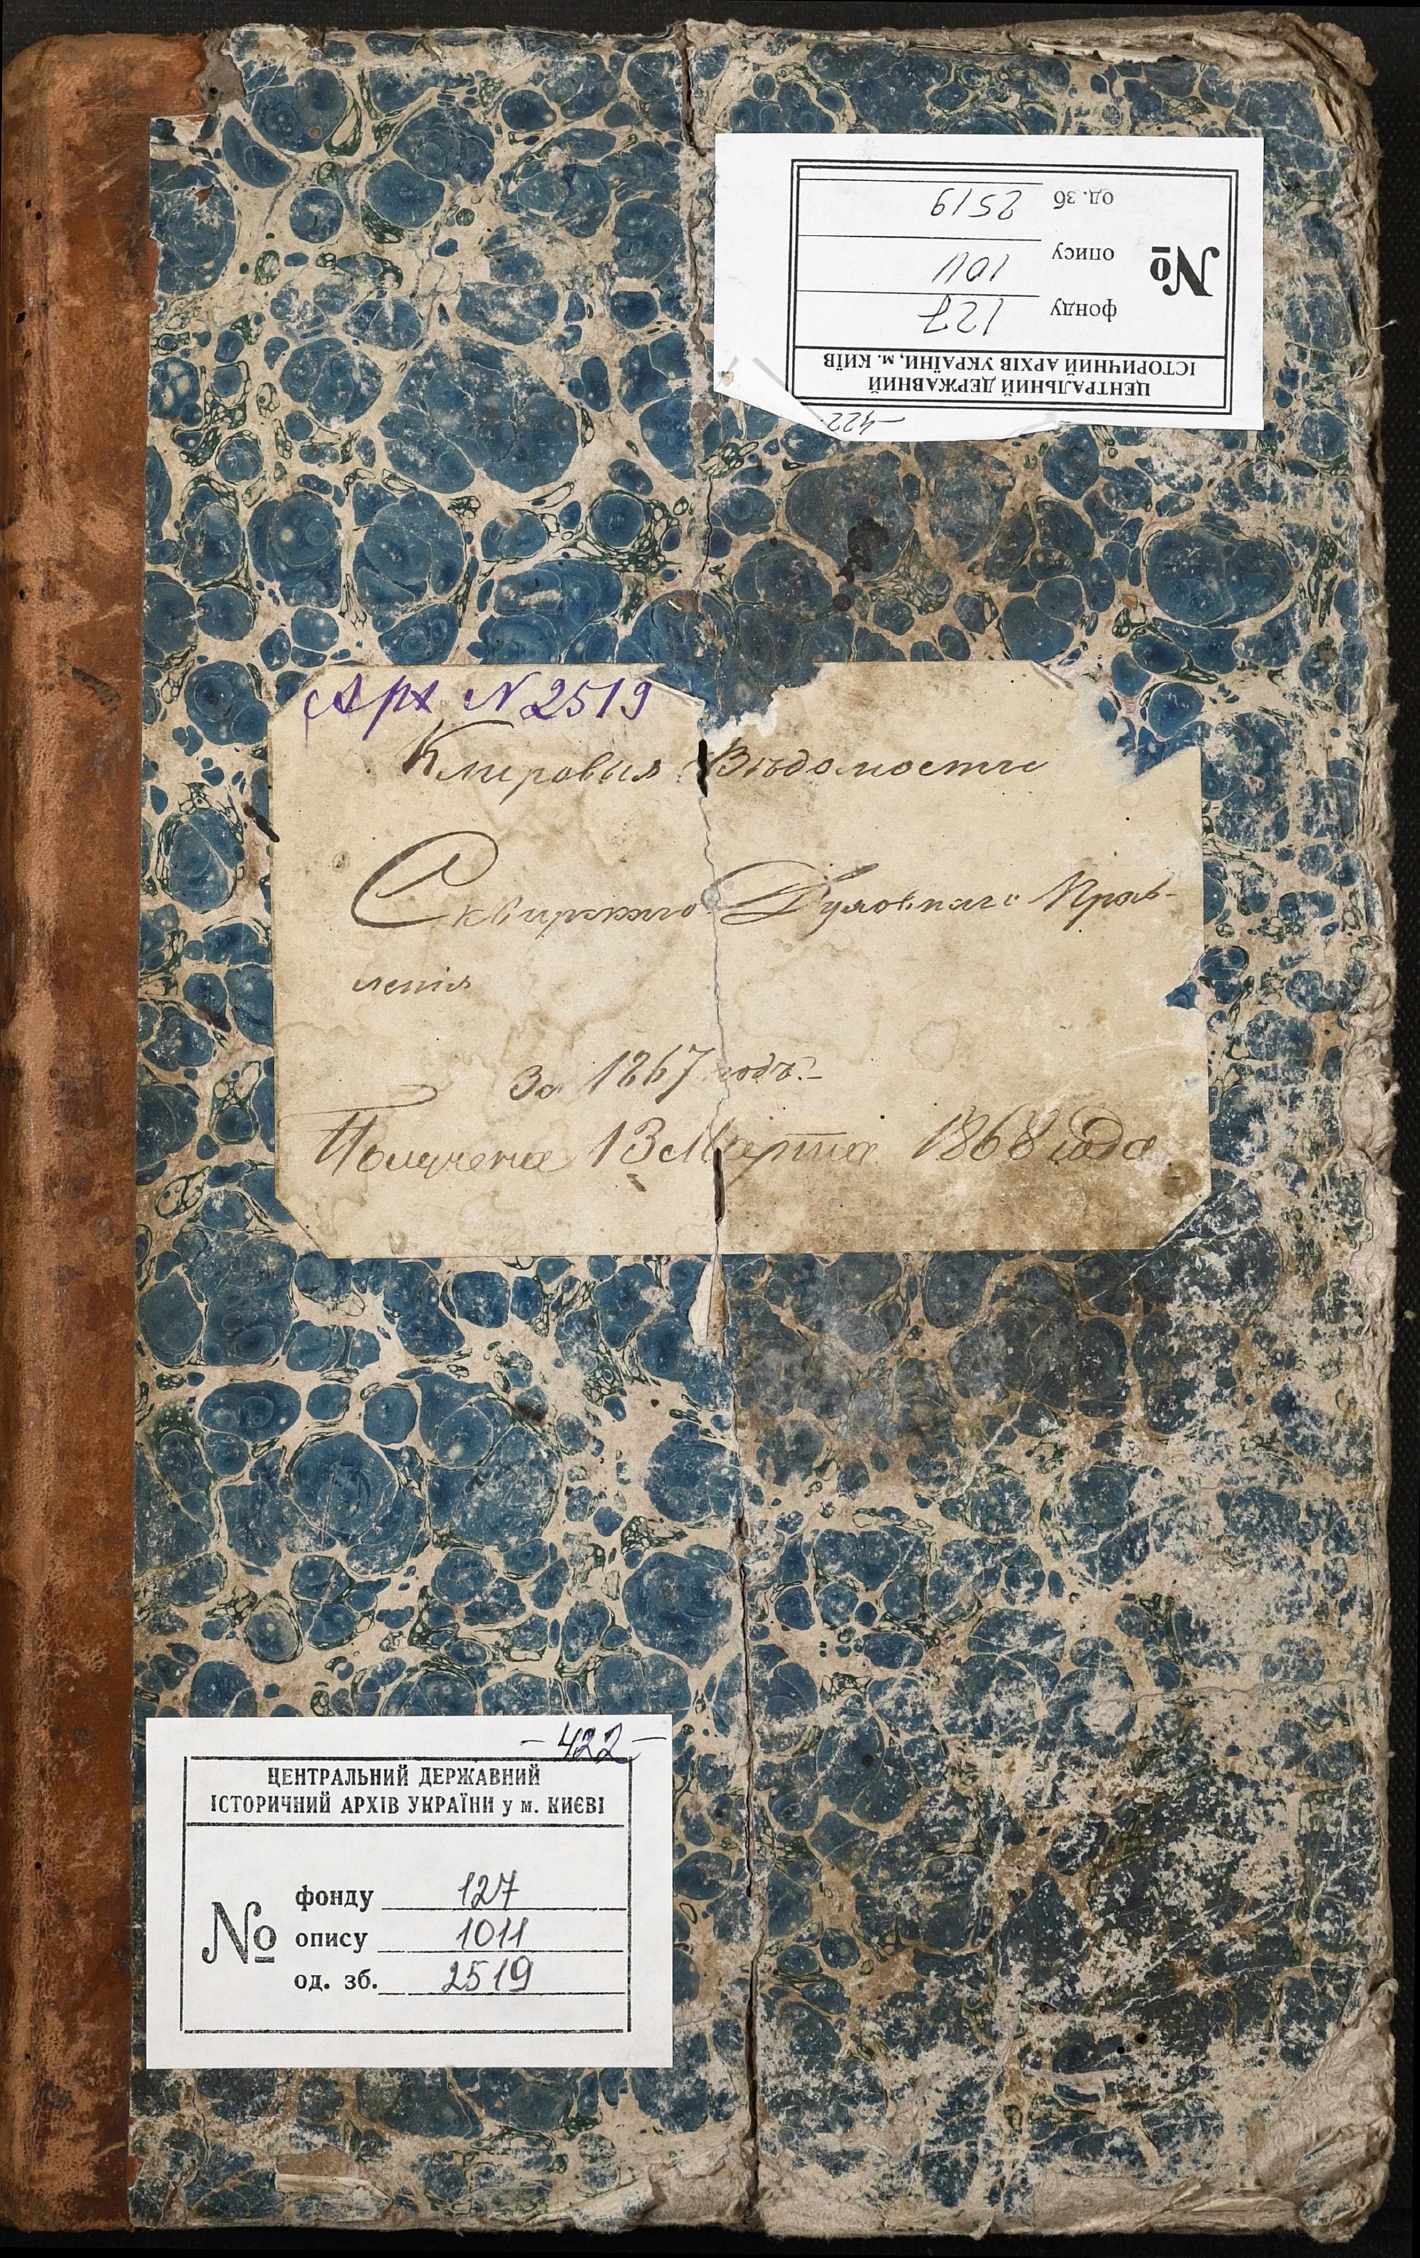 -422-
ЦЕНТРАЛЬНИЙ ДЕРЖАВНИЙ
ІСТОРИЧНИЙ АРХІВ УКРАЇНИ, м. КИЇВ
№
фонду 127
опису 1011
од. зб 2519
Арх N 2519
Клировыя Вѣдомости
Сквирскаго Духовнаго Прав-
ленія
За 1867 годъ.-
Получена 13 Марта 1868 года
-422-
ЦЕНТРАЛЬНИЙ ДЕРЖАВНИЙ
ІСТОРИЧНИЙ АРХІВ УКРАЇНИ у м. КИЄВІ
№
фонду 127
опису 1011
од. зб. 2519